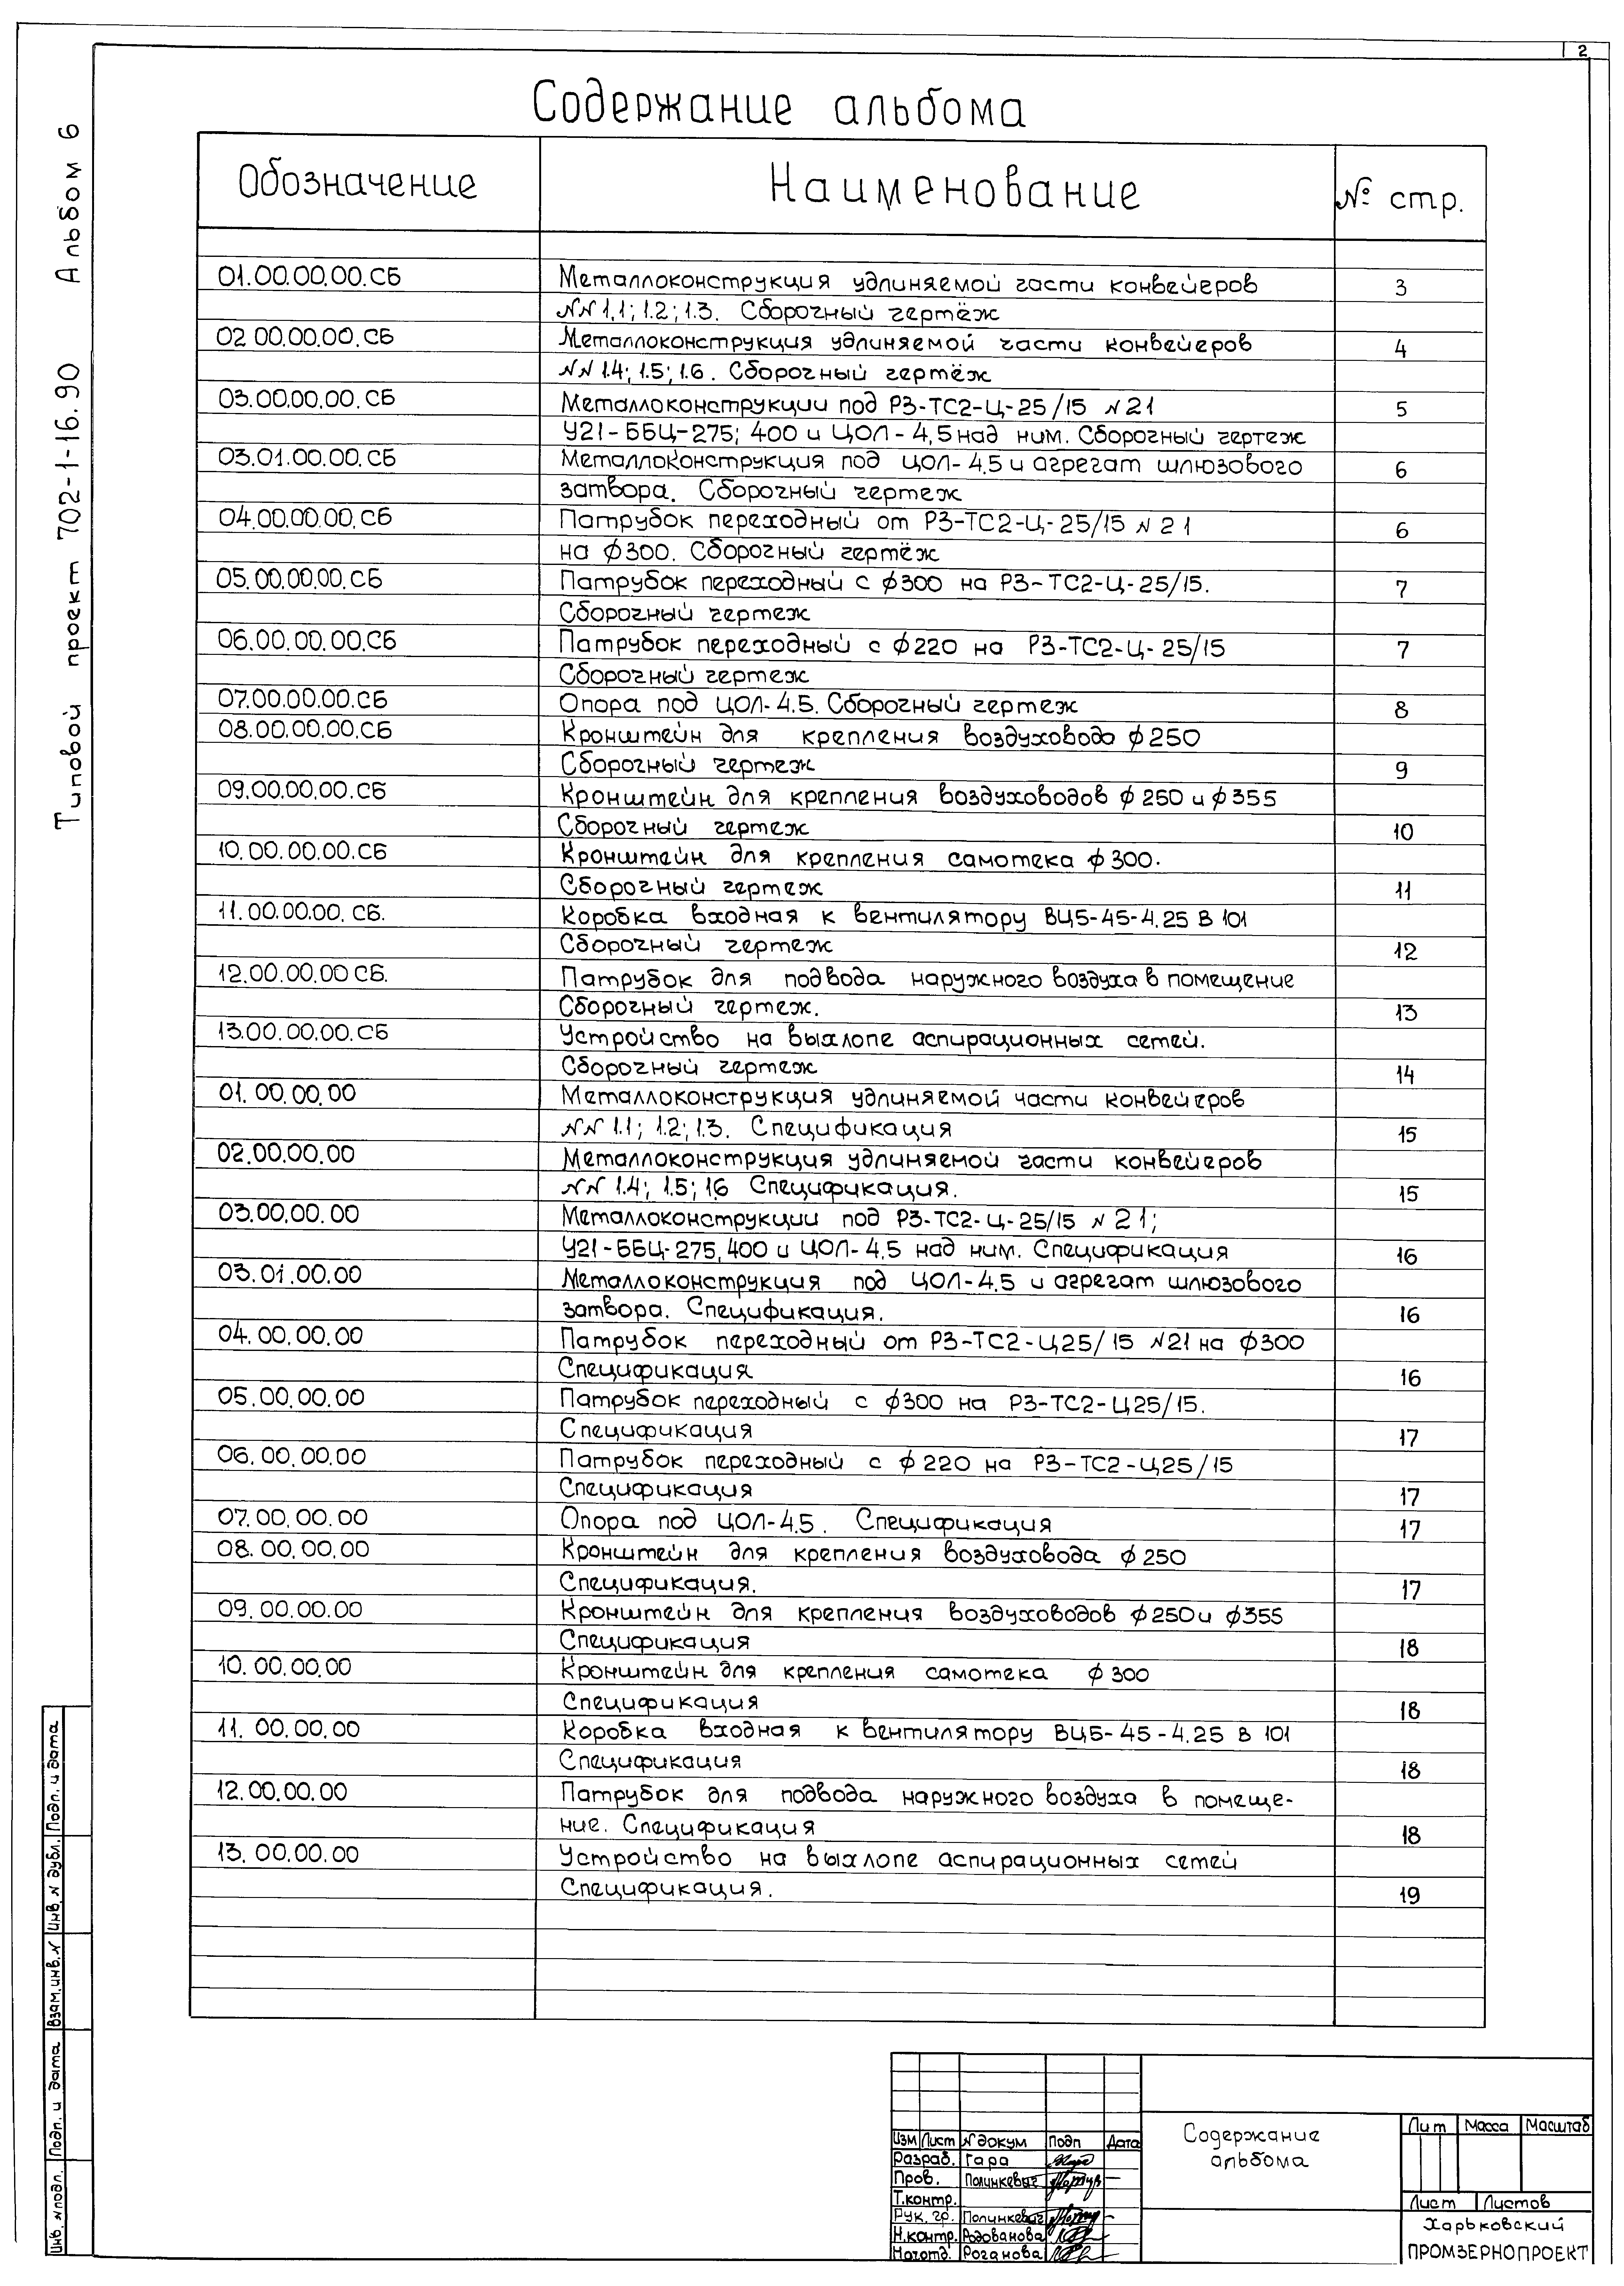 2
Содержание альбома
Типовой проект 702-1-16.90 Альбом 6
Обозначение Наименование № стр.
01.00.00.00.СБ Металлоконструкция удлиняемой части конвейеров 3
NN 1.1; 1.2; 1.3. Сборочный чертёж
02 00.00.00.СБ Металлоконструкция удлиняемой части конвейеров 4
NN 1.4; 1.5; 1.6. Сборочный чертёж
03.00.00.00.СБ Металлоконструкции под РЗ-ТС2-Ц-25/15 N21 5
У21-ББЦ-275; 400 и ЦОЛ-4,5 над ним. Сборочный чертеж
03.01.00.00.СБ Металлоконструкция под ЦОЛ-4.5 и агрегат шлюзового 6
затвора. Сборочный чертеж
04.00.00.00.СБ Патрубок переходный от РЗ-ТС2-Ц-25/15 N21 6
на ф300. Сборочный чертёж
05.00.00.00.СБ Патрубок переходный с ф300 на РЗ-ТС2-Ц-25/15. 7
Сборочный чертеж
06.00.00.00.СБ Патрубок переходный с ф220 на РЗ-ТС2-Ц-25/15 7
Сборочный чертеж
07.00.00.00.СБ Опора под ЦОЛ-4.5. Сборочный чертеж 8
08.00.00.00.СБ Кронштейн для крепления воздуховода ф250
Сборочный чертеж 9
09.00.00.00.СБ Кронштейн для крепления воздуховодов ф250 и ф355
Сборочный чертеж 10
10.00.00.00.СБ Кронштейн для крепления самотека ф300.
Сборочный чертеж 11
11.00.00.00.СБ. Коробка входная к вентилятору ВЦ5-45-4.25 В 101
Сборочный чертеж 12
12.00.00.00 СБ. Патрубок для подвода наружного воздуха в помещение
Сборочный чертеж. 13
13.00.00.00.СБ Устройство на выхлопе аспирационных сетей.
Сборочный чертеж 14
01.00.00.00 Металлоконструкция удлиняемой части конвейеров
NN 1.1; 1.2; 1.3. Спецификация 15
02.00.00.00 Металлоконструкция удлиняемой части конвейеров
NN 1.4; 1.5; 1.6 Спецификация. 15
03.00.00.00 Металлоконструкции под РЗ-ТС2-Ц-25/15 N21;
У21-ББЦ-275,400 и ЦОЛ-4.5 над ним. Спецификация 16
03.01.00.00 Металлоконструкция под ЦОЛ-4.5 и агрегат шлюзового
затвора. Спецификация. 16
04.00.00.00 Патрубок переходный от РЗ-ТС2-Ц25/15 N21 на ф300
Спецификация 16
05.00.00.00 Патрубок переходный с ф300 на РЗ-ТС2-Ц25/15.
Спецификация 17
06.00.00.00 Патрубок переходный с ф220 на РЗ-ТС2-Ц25/15
Спецификация 17
07.00.00.00 Опора под ЦОЛ-4.5. Спецификация 17
08.00.00.00 Кронштейн для крепления воздуховода ф250
Спецификация. 17
09.00.00.00 Кронштейн для крепления воздуховодов ф250 и ф355
Спецификация 18
10.00.00.00 Кронштейн для крепления самотека ф300
Спецификация 18
11.00.00.00 Коробка входная к вентилятору ВЦ5-45-4.25 В 101
Спецификация 18
12.00.00.00 Патрубок для подвода наружного воздуха в помеще-
ние. Спецификация 18
13.00.00.00 Устройство на выхлопе аспирационных сетей
Спецификация. 19
Инв. N подл. Подп. и дата Взам.инв.N Инв.N дубл. Подп. и дата
Изм Лист N докум Подп Дата
Разраб. Гара
Пров. Полинкевич
Т.контр.
Рук. гр. Полинкевич
Н.контр. Радованова
Нач.отд. Роганова
Содержание
альбома
Лит Масса Масштаб
Лист Листов
Харьковский
ПРОМЗЕРНОПРОЕКТ